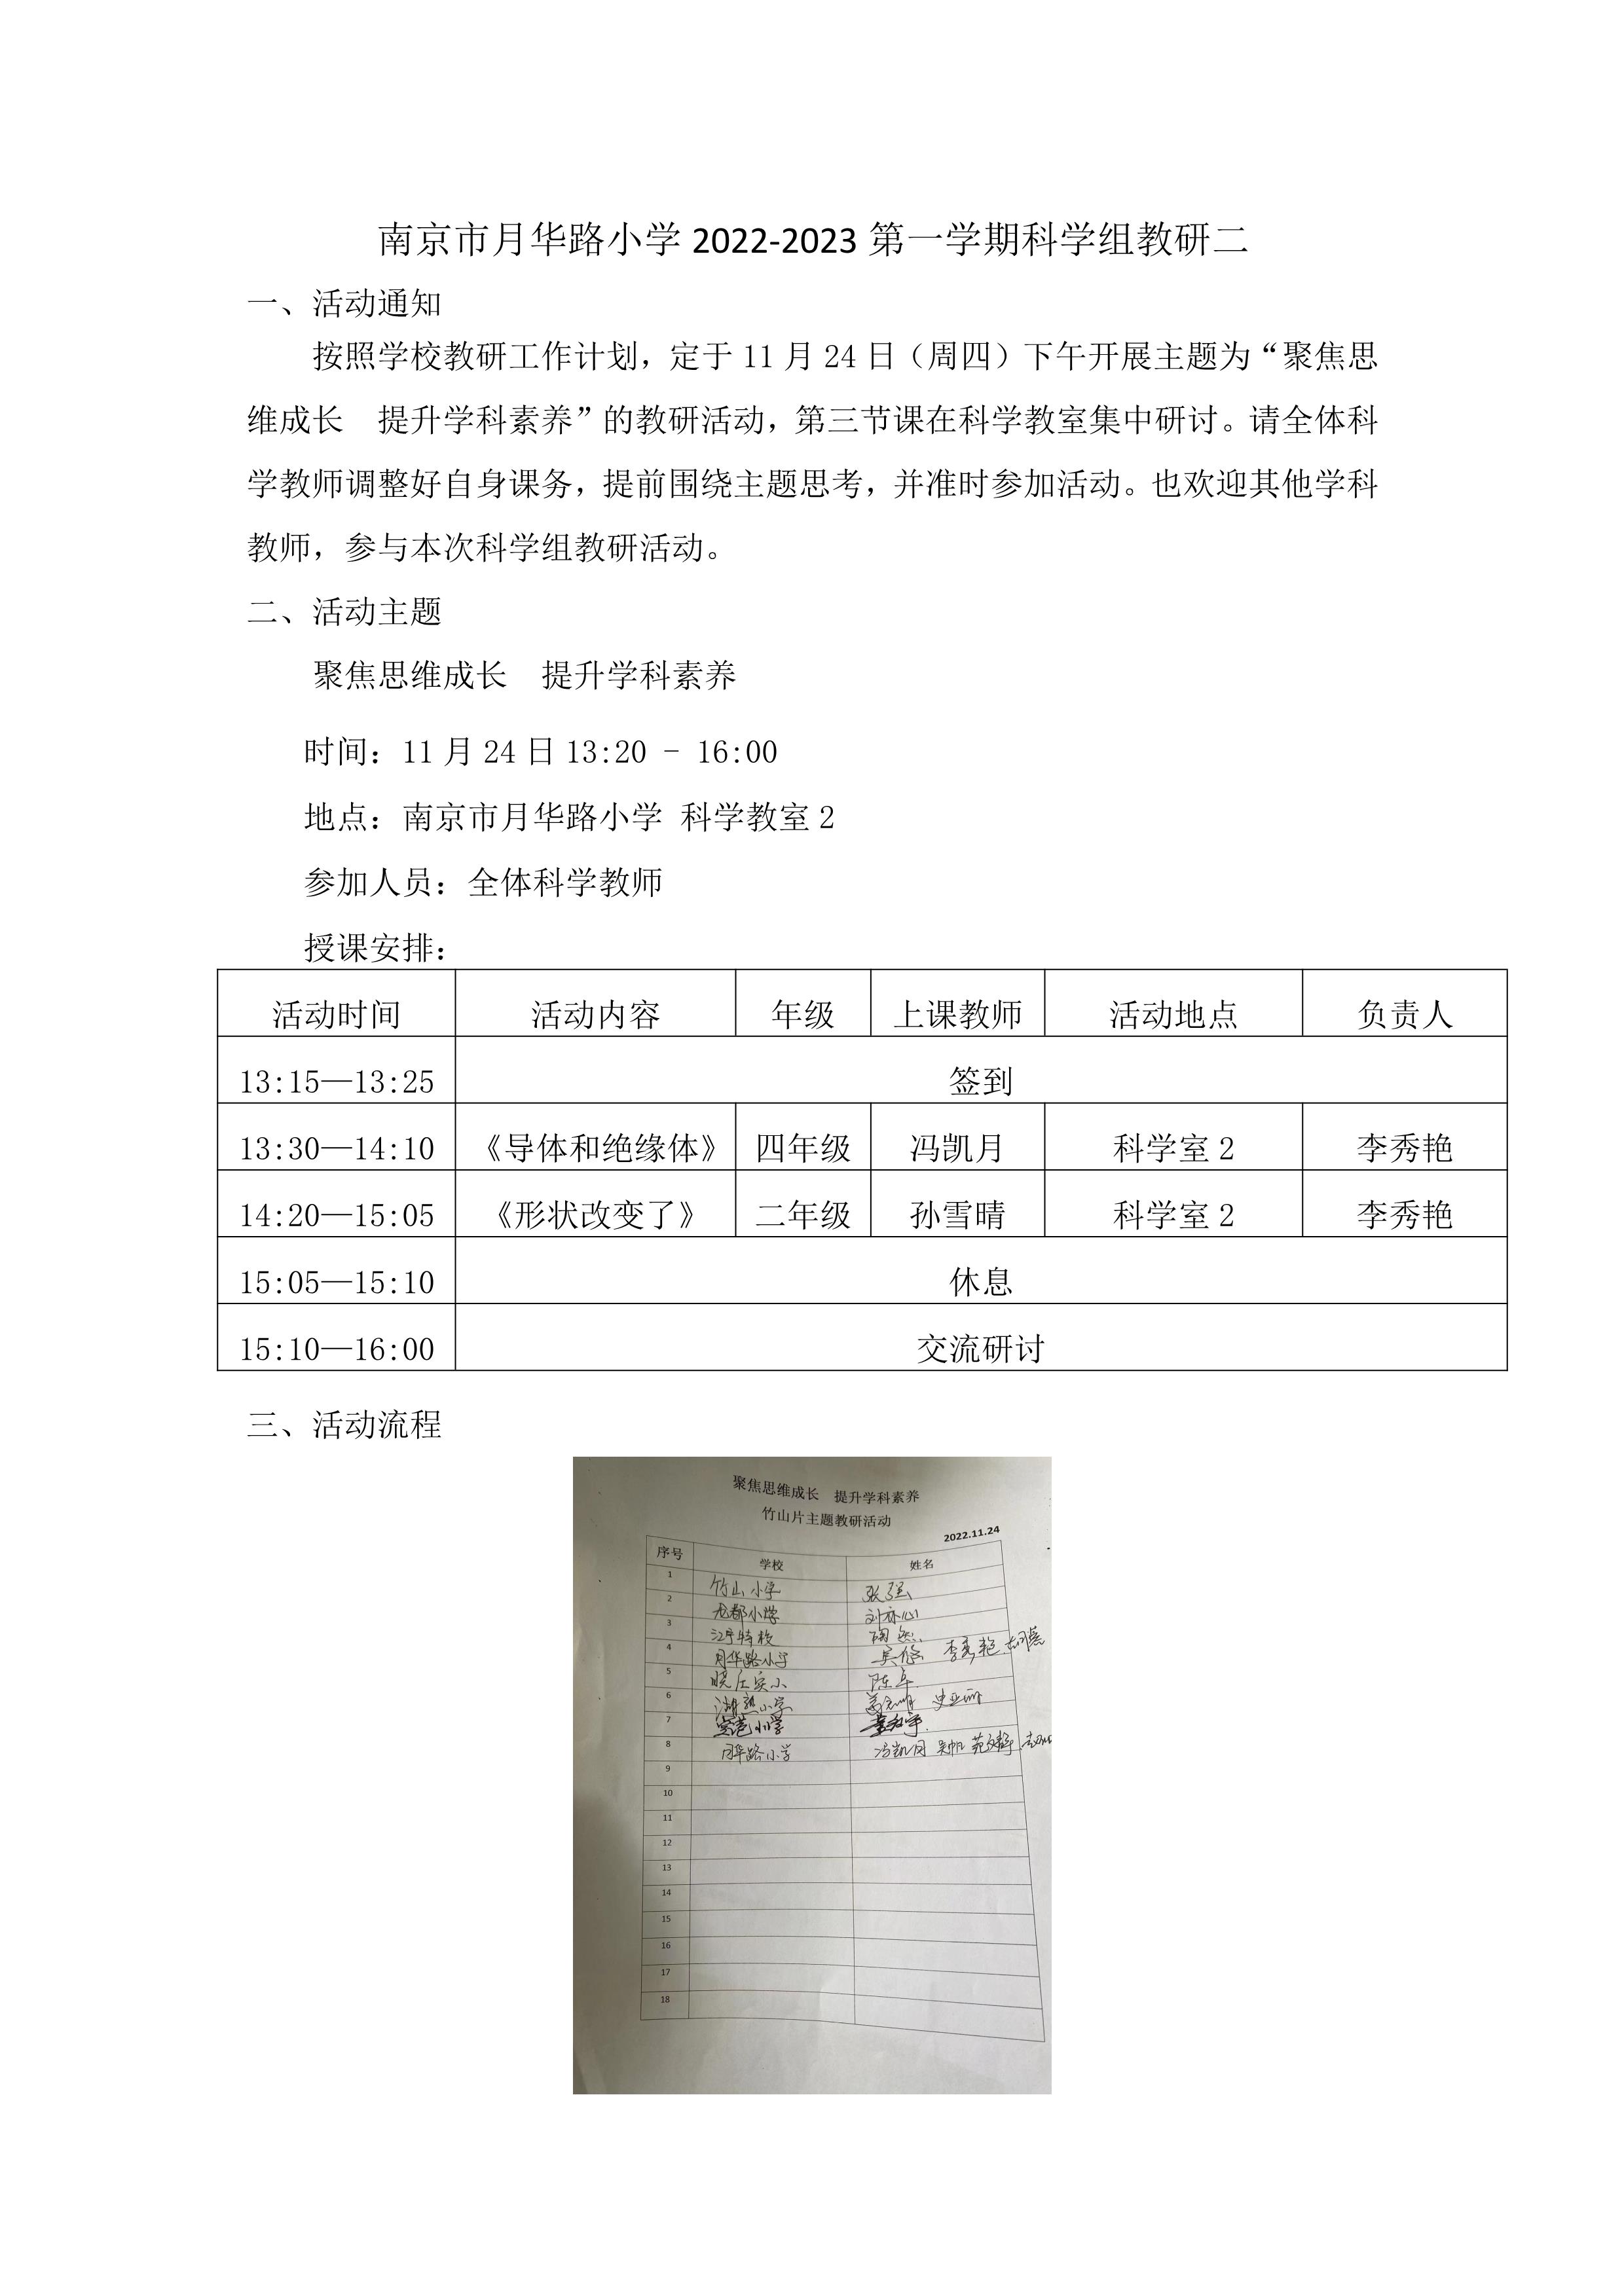 南京市月华路小学 2022-2023 第一学期科学组教研二
一、活动通知
按照学校教研工作计划，定于 11 月 24 日（周四）下午开展主题为“聚焦思
维成长　提升学科素养”的教研活动，第三节课在科学教室集中研讨。请全体科
学教师调整好自身课务，提前围绕主题思考，并准时参加活动。也欢迎其他学科
教师，参与本次科学组教研活动。
二、活动主题
聚焦思维成长　提升学科素养
时间：11 月 24 日 13:20 - 16:00
地点：南京市月华路小学 科学教室 2
参加人员：全体科学教师
授课安排：
活动时间 活动内容 年级 上课教师 活动地点 负责人
13:15—13:25 签到
13:30—14:10 《导体和绝缘体》 四年级 冯凯月 科学室 2 李秀艳
14:20—15:05 《形状改变了》 二年级 孙雪晴 科学室 2 李秀艳
15:05—15:10 休息
15:10—16:00 交流研讨
三、活动流程
聚焦思维成长　提升学科素养
竹山片主题教研活动
2022.11.24
序号 学校 姓名
1 竹山小学 张强
2 龙都小学
3 江宁特校
4 月华路小学 吴悠 李秀艳
5 晓庄实小 陈卓
6 湖熟小学 史亚丽
7
8 月华路小学 冯凯月
9
10
11
12
13
14
15
16
17
18